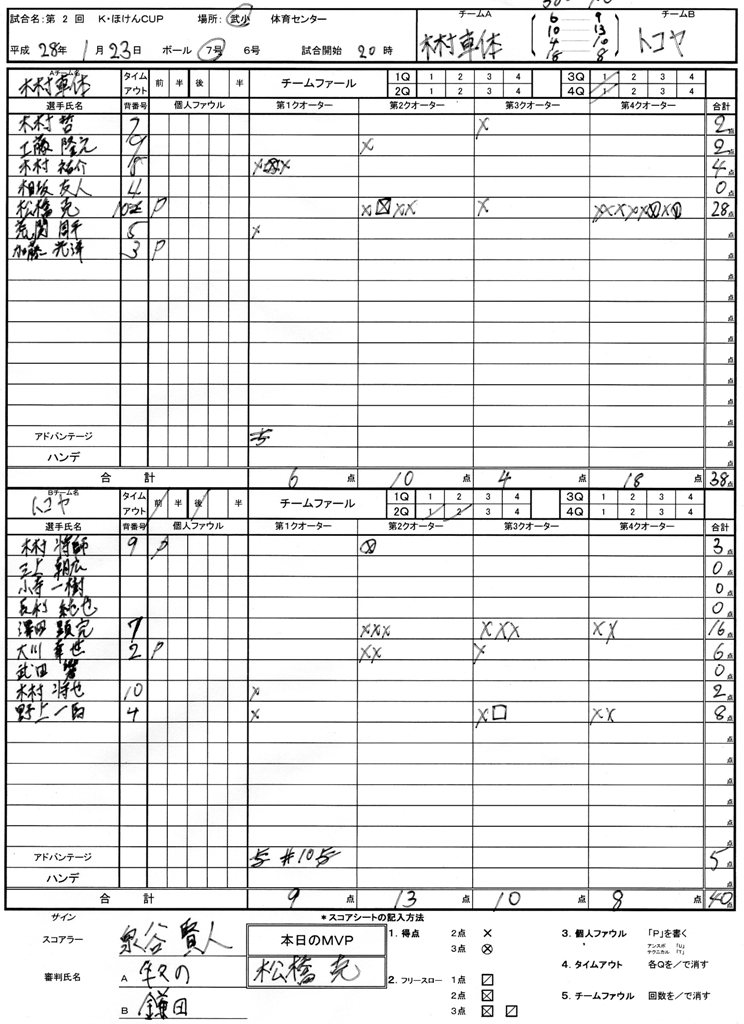 試合名:第 2 回 K・ほけんCUP 場所: 武小 体育センター
平成 28年 1月 23日 ボール 7号 6号 試合開始 20時
チームA
木村車体
6 9
10 13
4 10
18 8
チームB
トコヤ
Aチーム名
木村車体
タイムアウト 前 半 後 半 チームファール 1Q 1 2 3 4 3Q 1 2 3 4
2Q 1 2 3 4 4Q 1 2 3 4
選手氏名 背番号 個人ファウル 第1クオーター 第2クオーター 第3クオーター 第4クオーター 合計
木村 哲 7 × 2点
工藤 隆元 9 × 2点
木村 祐介 8 4点
相坂 友人 4 0点
松橋 克 P × ☒ ×× × 28点
荒関 周平 5 × 点
加藤 光洋 3 P 点
アドバンテージ 点
ハンデ 点
合 計 6点 10点 4点 18点 38点
Bチーム名
トコヤ
タイムアウト 前 半 後 半 チームファール 1Q 1 2 3 4 3Q 1 2 3 4
2Q 1 2 3 4 4Q 1 2 3 4
選手氏名 背番号 個人ファウル 第1クオーター 第2クオーター 第3クオーター 第4クオーター 合計
木村 将師 9 P ⊗ 3点
三上 朝広 0点
小寺 一樹 0点
純也 0点
澤田 顕完 7 ××× ××× ×× 16点
大川 幸世 2 P ×× × 6点
武田 0点
木村 将也 10 × 2点
野上 一 4 × ×□ ×× 8点
アドバンテージ 5 #10 5 5点
ハンデ 点
合 計 9点 13点 10点 8点 40点
サイン
スコアラー 泉谷 賢人
審判氏名 A
B 鎌田
本日のMVP
松橋 克
*スコアシートの記入方法
1. 得点 2点 ×
3点 ⊗
2. フリースロー 1点 ⍁
2点 ☒
3点 ☒ ⍁
3. 個人ファウル 「P」を書く
アンスポ 「U」
テクニカル 「T」
4. タイムアウト 各Qを/で消す
5. チームファウル 回数を/で消す